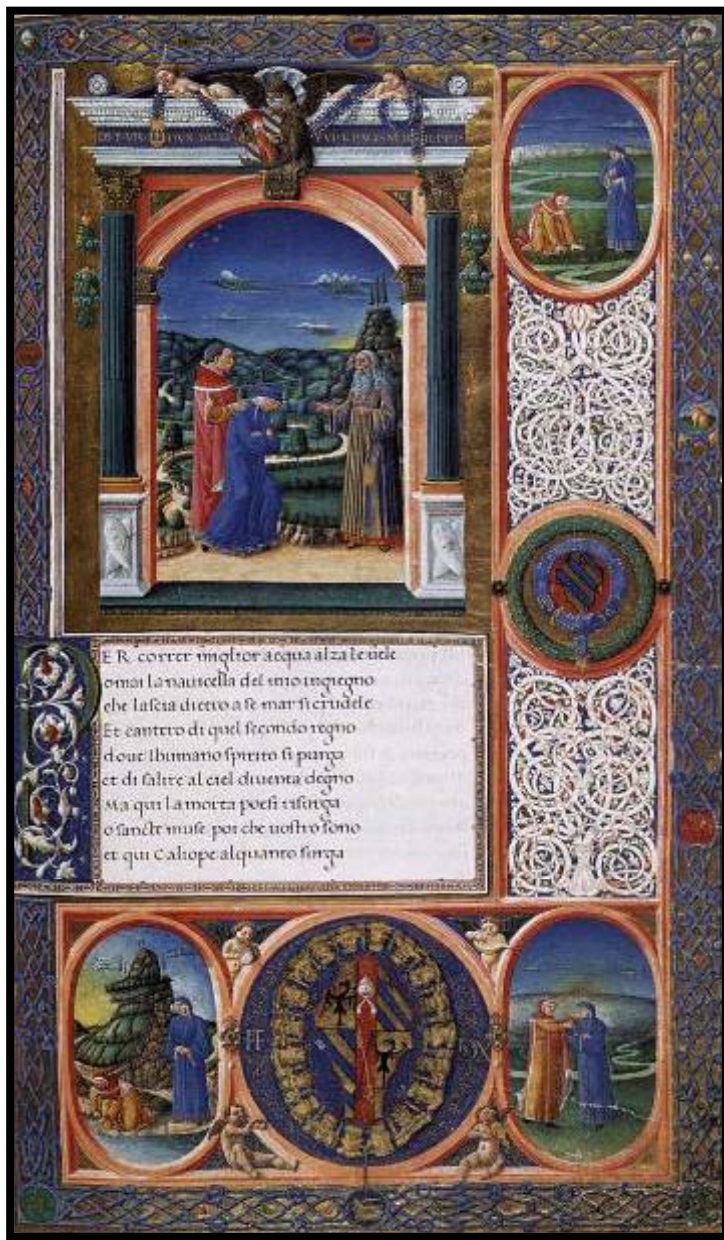 PER correr miglior acqua alza le uele
omai la nauicella del mio ingiegno
che lascia dietro a se mar si crudele
Et cantero di quel secondo regno
doue lhumano spirito si purga
et di salire al ciel diuenta degno
Ma qui la morta poesi risurga
o sancte muse poi che uostro sono
et qui Caliope alquanto surga